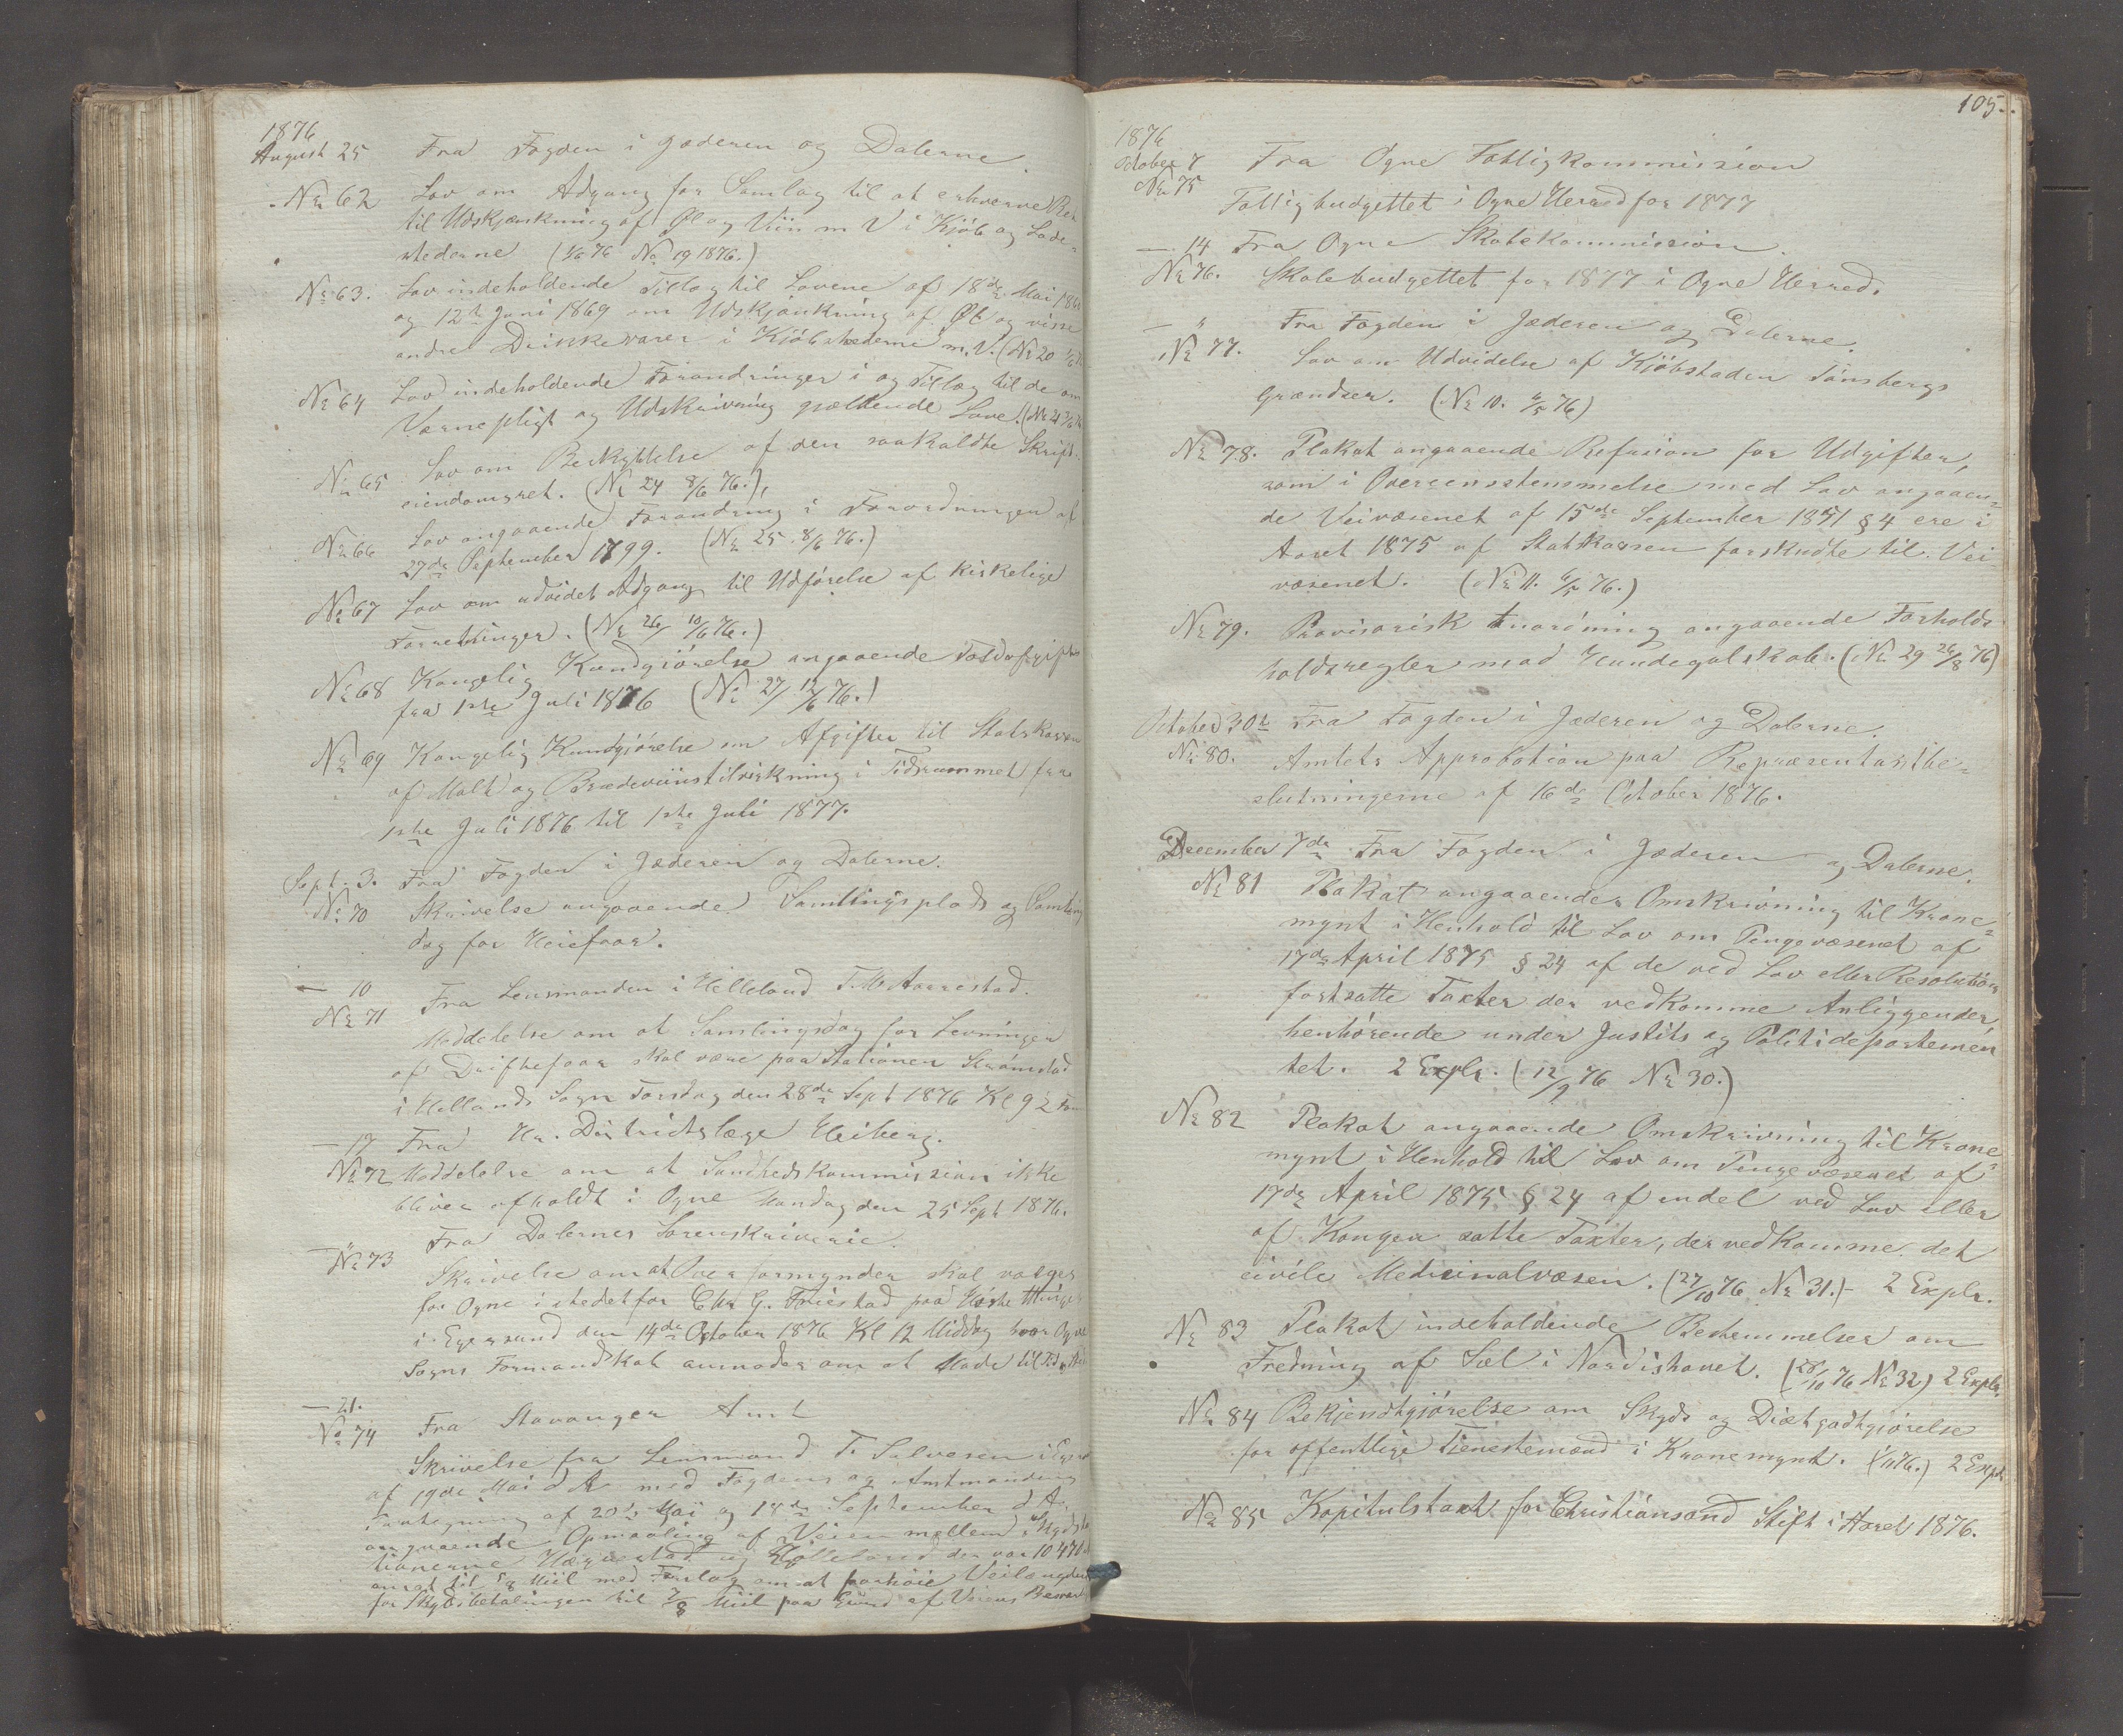 1876
August 25 Fra Fogden i Jæderen og Dalerne
No 62 Lov om Adgang for Samlag til at erhverve Ret
til Udskjænkning af Øl og Viin m V i Kjøb og Lade-
stederne (1/6 76 No 19 1876.)
No 63. Lov indeholdende Tillæg til Lovene af 18de Mai
og 12te Juni 1869 om Udskjænkning af Øl og visse
andre Drikkevarer i Kjöbstederne m. V. (No 20
No 64 Lov indeholdende Forandringer i og Tillæg til de om
Værnepligt og Udskrivning gjældende Love. (No 21
No 65 Lov om Beskyttelse af den saakaldte Skrift-
eiendomsret. (No 24 8/6 76.)
No 66 Lov angaaende Forandring i Forordningen af
27de September 1799. (No 25. 8/6 76.)
No 67 Lov om udvidet Adgang til Udførelse af kirkelige
Forretninger. (No 26/ 10/6 76.)
No 68 Kongelig Kundgjörelse angaaende Toldafgifter
fra 1ste Juli 1876 (No 27/ 12/6 76.)
No 69 Kongelig Kundgjörelse om Afgifter til Statskassen
af Malt og Brædeviinstilvirkning i Tidsrummet fra
1ste Juli 1876 til 1ste Juli 1877.
Sept. 3. Fra Fogden i Jæderen og Dalerne.
No 70 Skrivelse angaaende Samlingsplads og Samlings
dag for Heiefaar.
— 10 Fra Lensmanden i Helleland T. M. Aarrestad.
No 71 Meddelelse om at Samlingsdag for Levningen
af Driftefaar skal være paa Stationen
i Hellands Sogn Torsdag den 28de Sept 1876 Kl 9½
— 17 Fra Hr. Districtslæge Heiberg.
No 72 Meddelelse om at Sundhedskommission ikke
bliver afholdt i Ogne Mandag den 25 Sept 1876.
— " Fra Dalernes Sorenskriverie.
No 73 Skrivelse om at Overformynder skal vælges
for Ogne istedetfor Chr G. Friestad paa Høste thinget
i Egersund den 14de October 1876 Kl 12 Middag hvor Ogne
Sogns Formandskab anmodes om at Møde
— 21. Fra Stavanger Amt
No 74 Skrivelse fra Lensmand T. Salvesen i
af 19de Mai d A med Fogdens og Amtmandens
Paategning af 20de Mai og 18de September d. A.
angaaende Opmaaling af Veien mellem Skydssta
tionerne Hægrestad og Helleland der var
ansat til 5/8 Miil med Forslag om at forhøie Veilængden
for Skydsbetalingen til 7/8 Miil paa Grund af Veiens
105.
1876
October 7 Fra Ogne Fattigkommission
No 75 Fattigbudgettet i Ogne Herred for 1877
— 14 Fra Ogne Skolekommission.
No 76. Skolebudgettet for 1877 i Ogne Herred.
— " Fra Fogden i Jæderen og Dalerne.
No 77. Lov om Udvidelse af Kjöbstaden Tönsbergs
Grændser. (No 10. 6/5 76)
No 78. Plakat angaaende Refusion for Udgifter,
som i Overensstemmelse med Lov angaaen-
de Veivæsenet af 15de September 1851 § 4 ere i
Aaret 1875 af Statskassen forskudte til Vei
væsenet. (No 11. 6/5 76.)
No 79. Provisorisk Anordning angaaende Forholds
holdsregler mod Hundegalskab. (No 29 26/8 76)
October 30te Fra Fogden i Jæderen og Dalerne.
No 80. Amtets Approbation paa Repræsentantbe-
slutningerne af 16de October 1876.
December 7de Fra Fogden i Jæderen og Dalerne.
No 81 Plakat angaaende Omskrivning til Krone-
mynt i Henhold til Lov om Pengevæsenet af
17de April 1875 § 24 af de ved Lov eller Resolution
fastsatte Taxter der vedkomme Anliggender,
henhörende under Justits og Politidepartemen
tet. 2 Explr. (12/9 76 No 30.)
No 82 Plakat angaaende Omskrivning til Krone-
mynt i Henhold til Lov om Pengevæsenet af
17de April 1875 § 24 af endel ved Lov eller
af Kongen satte Taxter, der vedkomme det
civile Medicinalvæsen. (27/10 76 No 31.) - 2 Explr.
No 83 Plakat indeholdende Bestemmelser om
Fredning af Sæl i Nordishavet. (28/10 76 No 32) 2 Explr.
No 84 Bekjendtgjörelse om Skyds og Diætgodtgjörelse
for offentlige Tjenestemænd i Kronemynt. (1/11 76.) 2 Explr.
No 85 Kapitulstaxt for Christiansand Stift i Aaret 1876.